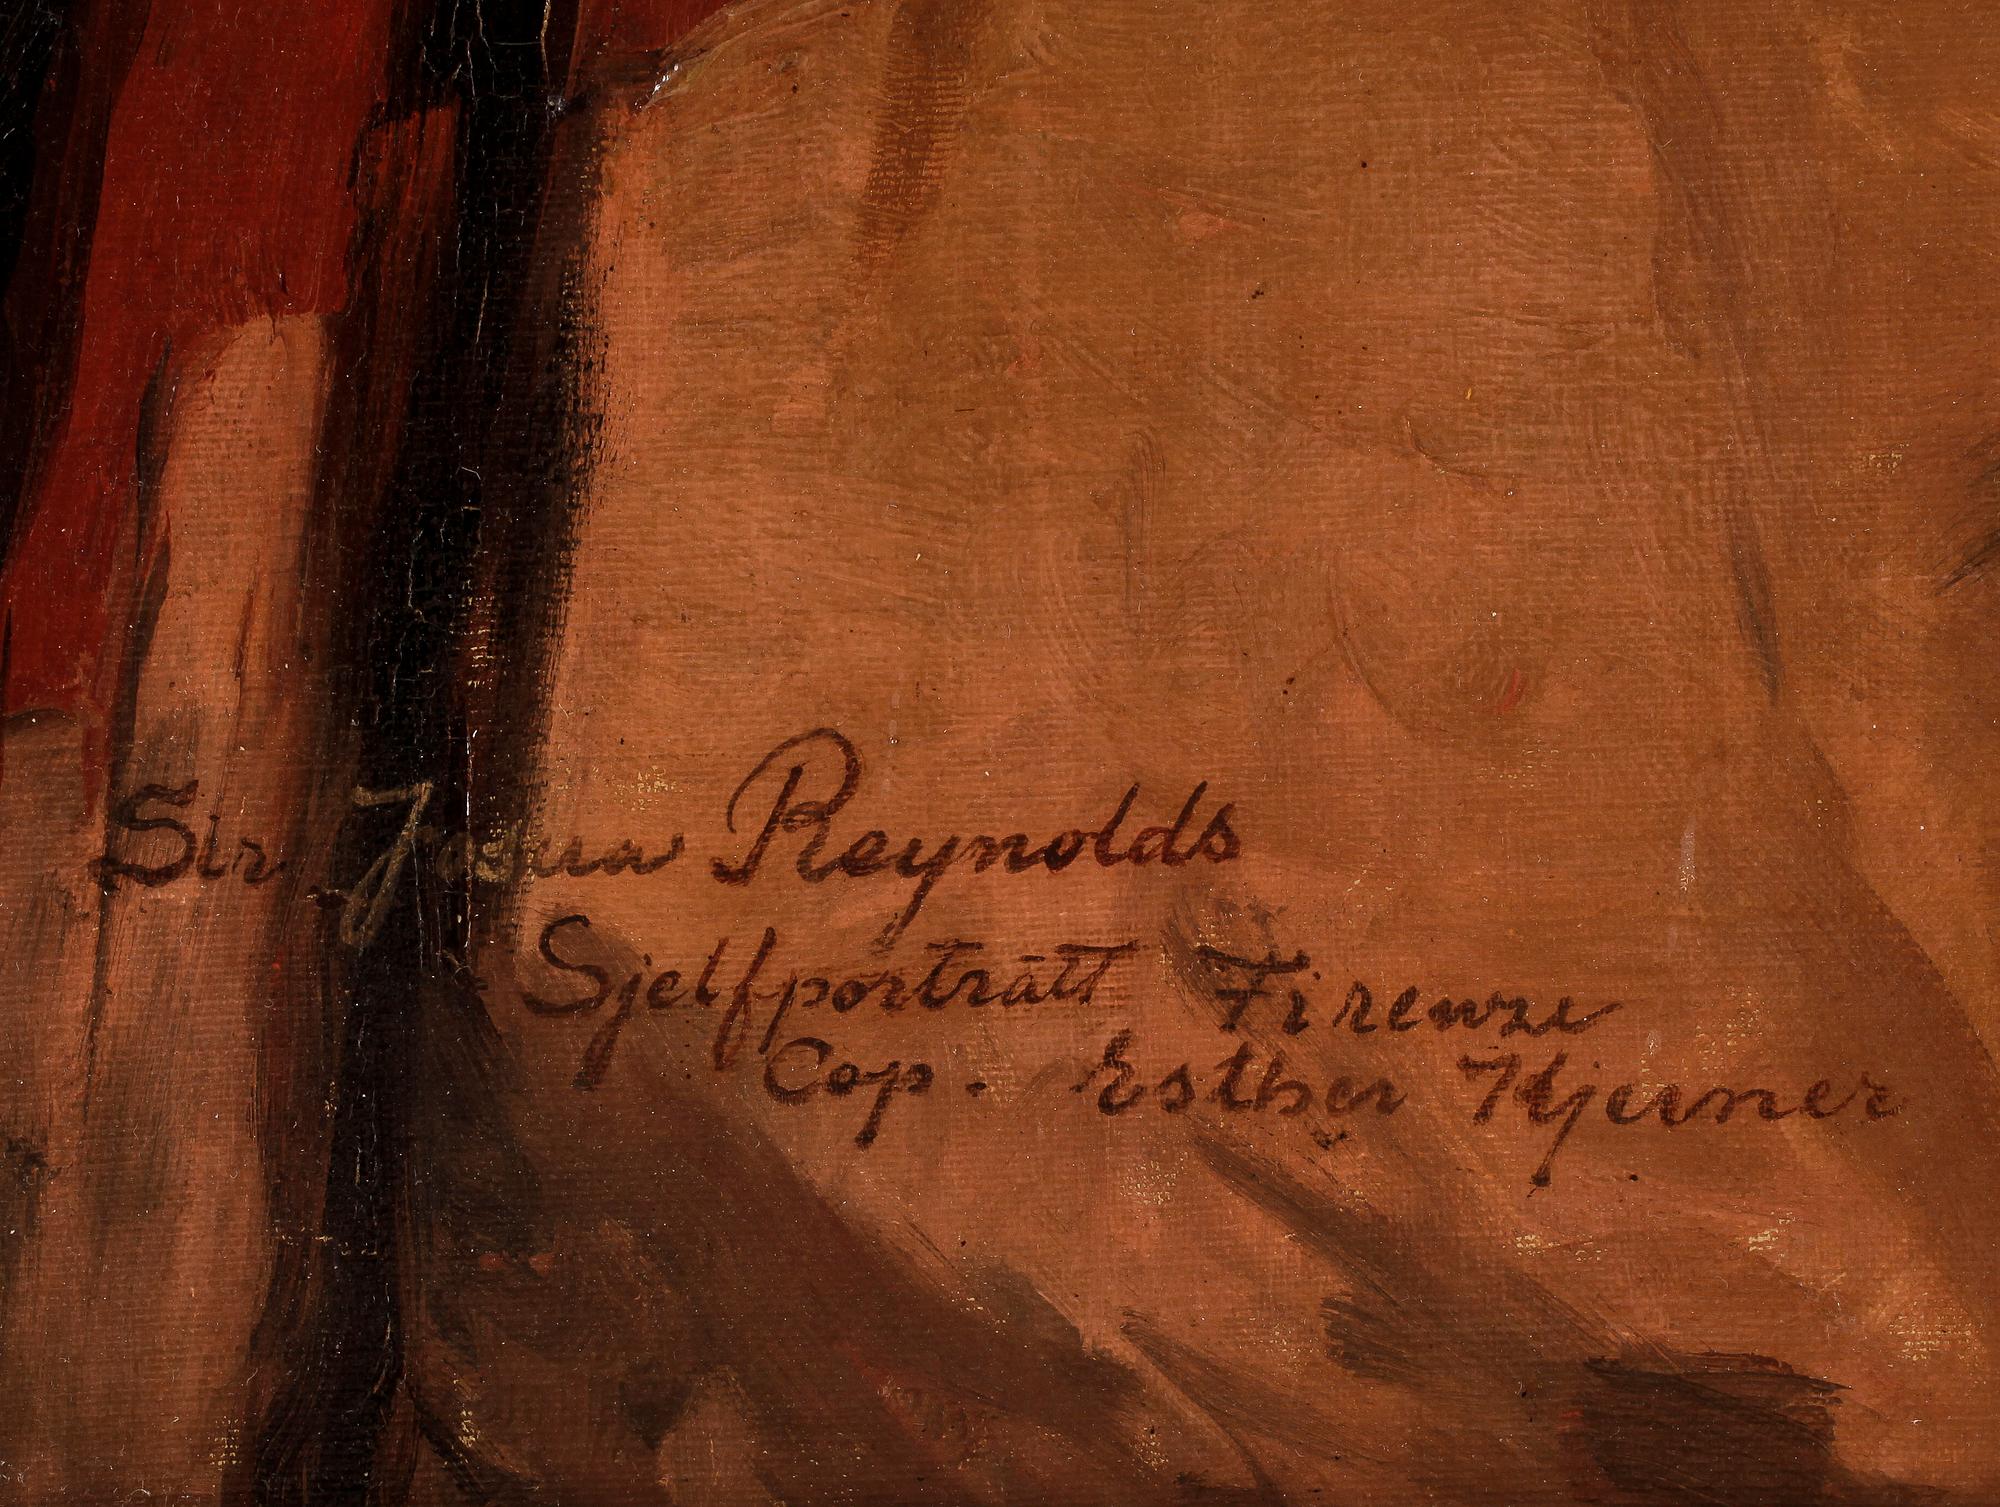 Sir Josua Reynolds
Sjelfporträtt Firenze
Cop. Esther Kjerner